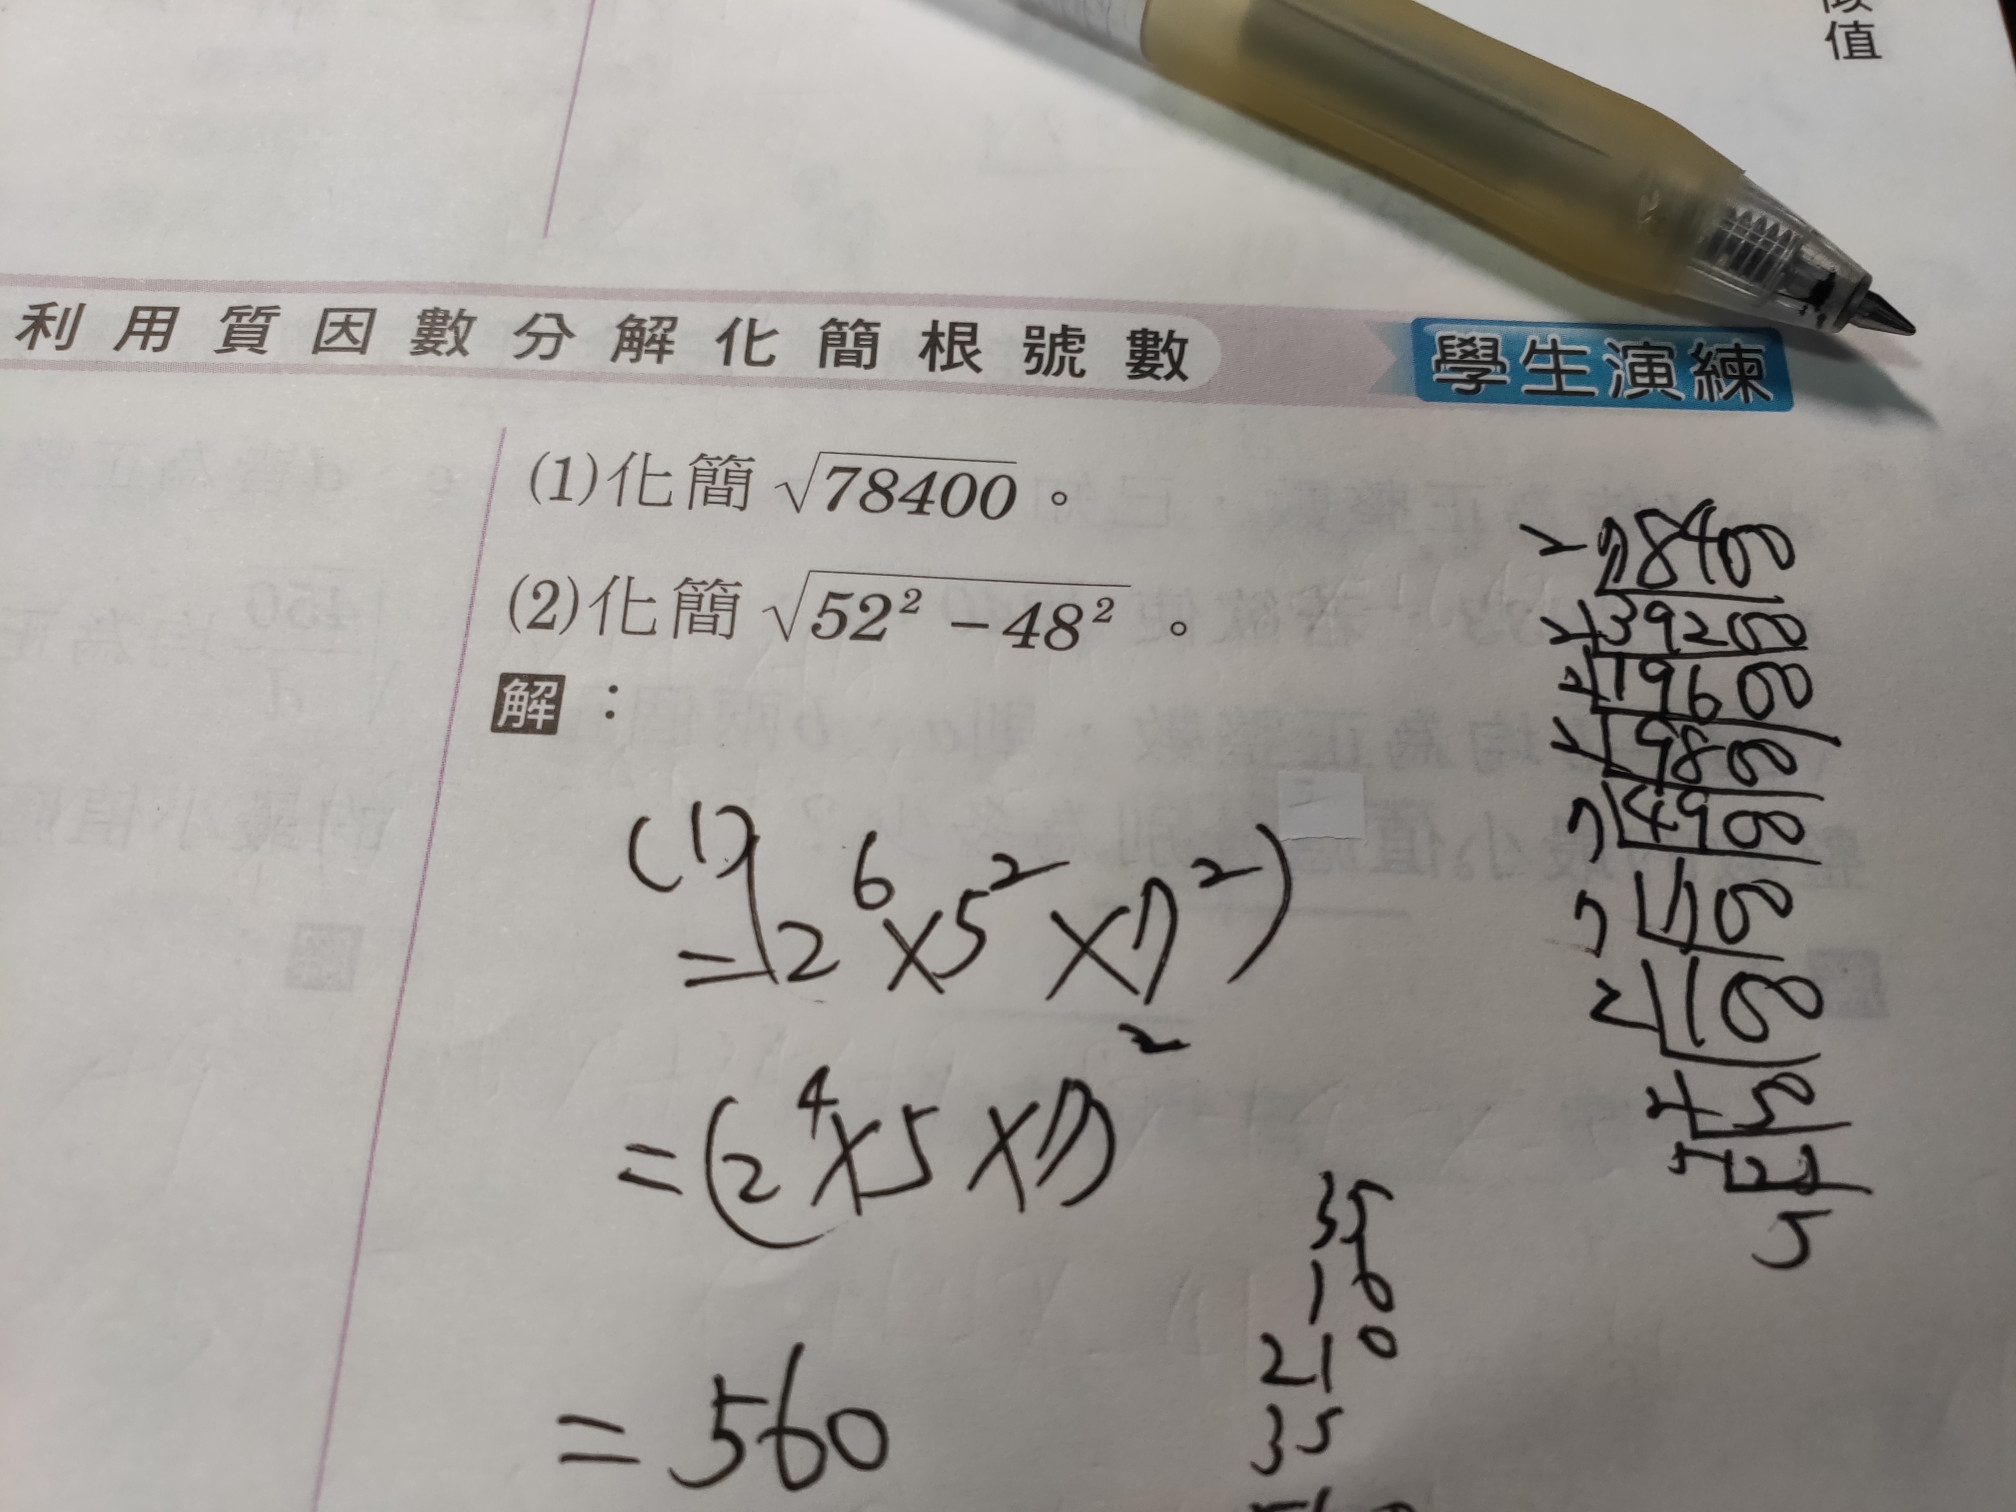 值
利用質因數分解化簡根號數 學生演練
(1)化簡√78400。
(2)化簡√52²－48²。
解：
(1)
=(2⁶×5²×7²)
=(2⁴×5×7)²
=560
2 78400
2 39200
2 19600
2 9800
7 4900
7 700
2 100
2 50
5 25
5
35
16
210
35